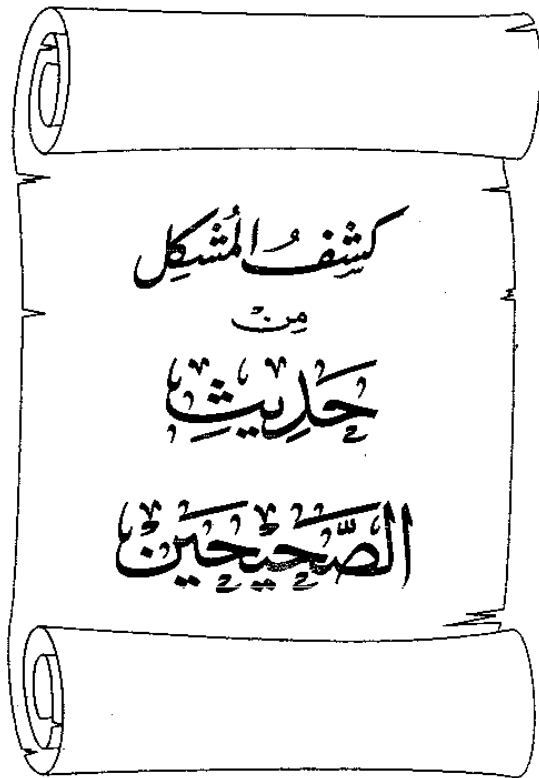 كَشْفُ المُشْكِل
مِنْ
حَدِيثِ
الصَّحِيحَيْنْ